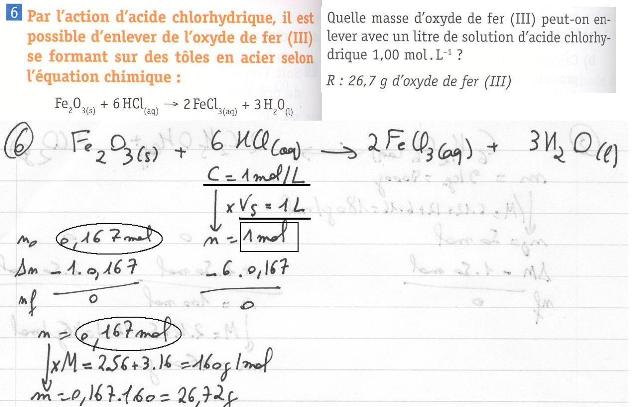 6 Par l'action d'acide chlorhydrique, il est
possible d'enlever de l'oxyde de fer (III)
se formant sur des tôles en acier selon
l'équation chimique :
Fe₂O₃(s) + 6 HCl(aq) → 2 FeCl₃(aq) + 3 H₂O(l)
Quelle masse d'oxyde de fer (III) peut-on en-
lever avec un litre de solution d'acide chlorhy-
drique 1,00 mol.L⁻¹ ?
R : 26,7 g d'oxyde de fer (III)
6 Fe₂O₃(s) + 6 HCl(aq) → 2 FeCl₃(aq) + 3 H₂O(l)
C = 1 mol/L
↓ x Vs = 1 L
n₀ 0,167 mol n = 1 mol
Δn - 1. 0,167 - 6. 0,167
nf 0 = 0
n = 0,167 mol
↓ x M = 2.56 + 3.16 = 160 g/mol
m = 0,167.160 = 26,72 g